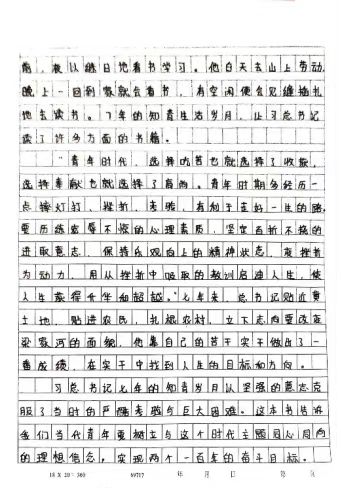 夜以继日地看书学习。他白天去山上劳动
晚上一回到窑就会看书，有空闲便会见缝插针
地去读书。7年的知青生活岁月，让习总书记
读了许多方面的书籍。
"青年时代，选择吃苦也就选择了收获，
选择奉献也就选择了高尚。青年时期多经历一
点摔打、挫折、考验，有利于走好一生的路。
要历练宠辱不惊的心理素质，坚定百折不挠的
进取意志，保持乐观向上的精神状态，变挫折
为动力，用从挫折中吸取的教训启迪人生，使
人生获得升华和超越。"七年来，总书记贴近黄
土地，贴进农民，扎根农村，立下志向要改变
梁家河的面貌，他靠自己的苦干实干做出了一
番成绩，在实干中找到人生的目标和方向。
习总书记七年的知青岁月以坚强的意志克
服了当时的严酷考验与巨大困难。这本书告诉
我们当代青年要树立与这个时代主题同心同向
的理想信念，实现两个一百年的奋斗目标。
18 X 20 = 360 年 月 日 第 页